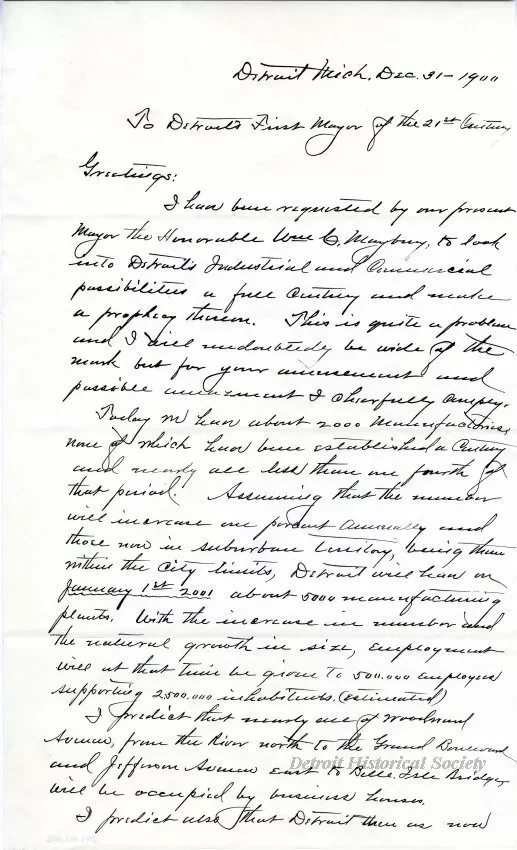 Detroit Mich. Dec. 31 - 1900
To Detroit's First Mayor of the 21st Century
Greetings:
I have been requested by our present
Mayor the Honorable Wm C. Maybury, to look
into Detroit's Industrial and Commercial
possibilities a full Century and make
a prophecy thereon. This is quite a problem
and I will undoubtedly be wide of the
mark but for your amusement and
possible amazement I cheerfully comply.
Today we have about 2000 Manufactories,
none of which have been established a Century
and nearly all less than one fourth of
that period. Assuming that the number
will increase one percent Annually and
those now in suburban territory, being then
within the City limits, Detroit will have on
January 1st 2001 about 5000 manufacturing
plants. With the increase in number and
the natural growth in size, employment
will at that time be given to 500.000 employees
supporting 2.500.000 inhabitants. (estimated)
I predict that nearly all of Woodward
Avenue, from the River north to the Grand Boulevard
and Jefferson Avenue east to Belle Isle Bridge,
will be occupied by business houses.
I predict also that Detroit then as now
Detroit Historical Society